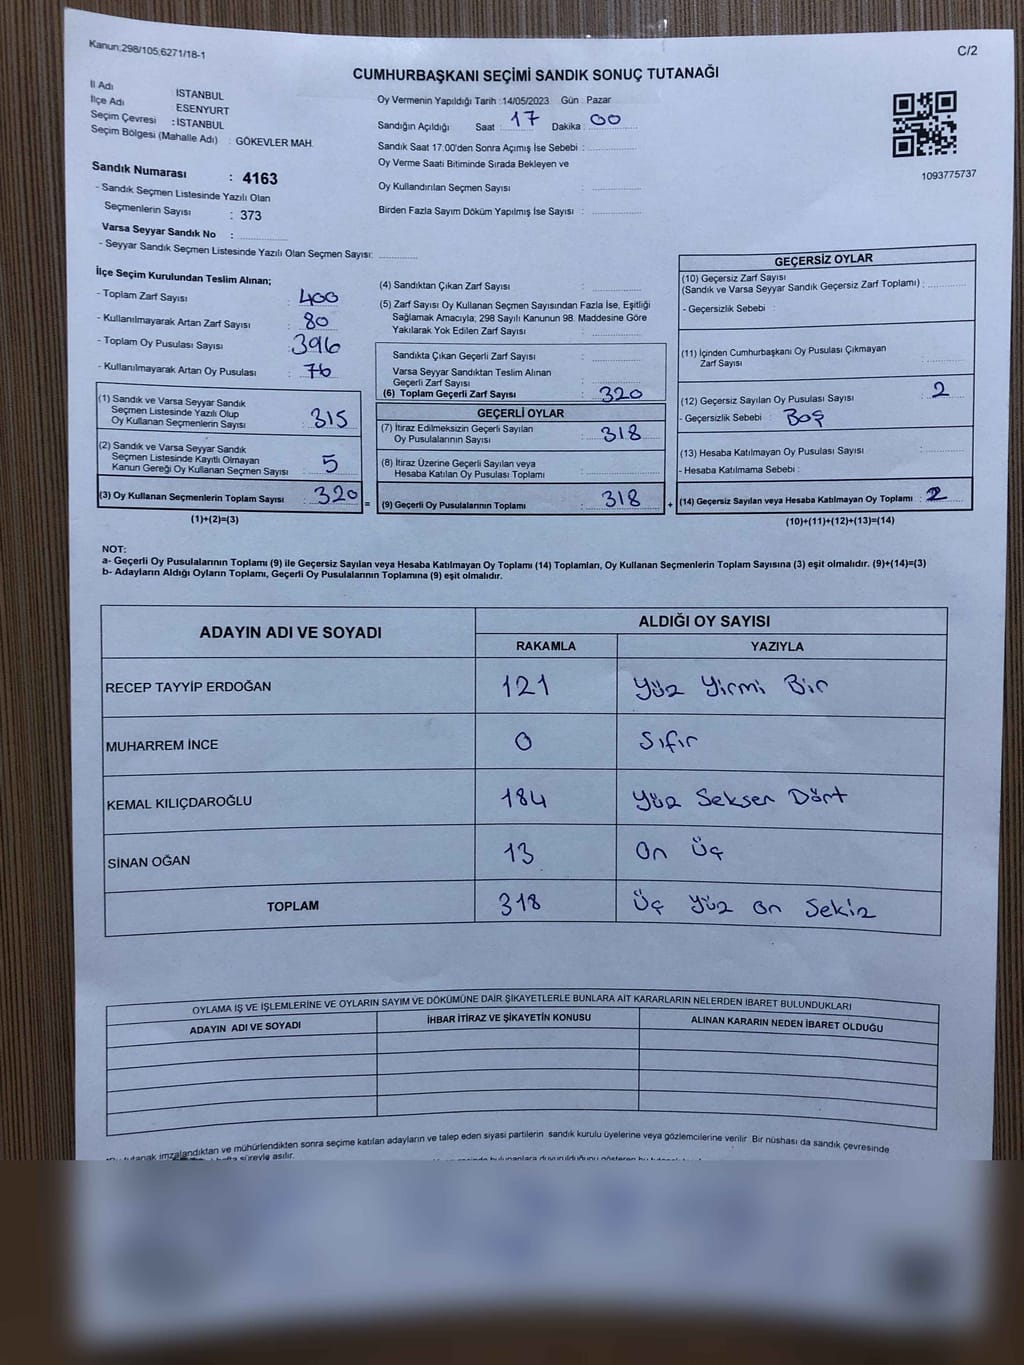 Kanun:298/105,6271/18-1
C/2
CUMHURBAŞKANI SEÇİMİ SANDIK SONUÇ TUTANAĞI
İl Adı : İSTANBUL
İlçe Adı : ESENYURT
Seçim Çevresi : İSTANBUL
Seçim Bölgesi (Mahalle Adı) : GÖKEVLER MAH.
Sandık Numarası : 4163
- Sandık Seçmen Listesinde Yazılı Olan
Seçmenlerin Sayısı : 373
Varsa Seyyar Sandık No :
- Seyyar Sandık Seçmen Listesinde Yazılı Olan Seçmen Sayısı:
Oy Vermenin Yapıldığı Tarih :14/05/2023 Gün : Pazar
Sandığın Açıldığı Saat : 17 Dakika : 00
Sandık Saat 17:00'den Sonra Açımış İse Sebebi :
Oy Verme Saati Bitiminde Sırada Bekleyen ve
Oy Kullandırılan Seçmen Sayısı :
Birden Fazla Sayım Döküm Yapılmış İse Sayısı :
1093775737
İlçe Seçim Kurulundan Teslim Alınan;
- Toplam Zarf Sayısı : 400
- Kullanılmayarak Artan Zarf Sayısı : 80
- Toplam Oy Pusulası Sayısı : 396
- Kullanılmayarak Artan Oy Pusulası : 76
(1) Sandık ve Varsa Seyyar Sandık
Seçmen Listesinde Yazılı Olup
Oy Kullanan Seçmenlerin Sayısı : 315
(2) Sandık ve Varsa Seyyar Sandık
Seçmen Listesinde Kayıtlı Olmayan
Kanun Gereği Oy Kullanan Seçmen Sayısı : 5
(3) Oy Kullanan Seçmenlerin Toplam Sayısı : 320 =
(1)+(2)=(3)
(4) Sandıktan Çıkan Zarf Sayısı :
(5) Zarf Sayısı Oy Kullanan Seçmen Sayısından Fazla İse, Eşitliği
Sağlamak Amacıyla; 298 Sayılı Kanunun 98. Maddesine Göre
Yakılarak Yok Edilen Zarf Sayısı :
Sandıkta Çıkan Geçerli Zarf Sayısı :
Varsa Seyyar Sandıktan Teslim Alınan
Geçerli Zarf Sayısı :
(6) Toplam Geçerli Zarf Sayısı : 320
GEÇERLİ OYLAR
(7) İtiraz Edilmeksizin Geçerli Sayılan
Oy Pusulalarının Sayısı : 318
(8) İtiraz Üzerine Geçerli Sayılan veya
Hesaba Katılan Oy Pusulası Toplamı :
(9) Geçerli Oy Pusulalarının Toplamı : 318 +
GEÇERSİZ OYLAR
(10) Geçersiz Zarf Sayısı
(Sandık ve Varsa Seyyar Sandık Geçersiz Zarf Toplamı) :
- Geçersizlik Sebebi :
(11) İçinden Cumhurbaşkanı Oy Pusulası Çıkmayan
Zarf Sayısı :
(12) Geçersiz Sayılan Oy Pusulası Sayısı : 2
- Geçersizlik Sebebi : Boş
(13) Hesaba Katılmayan Oy Pusulası Sayısı :
- Hesaba Katılmama Sebebi :
(14) Geçersiz Sayılan veya Hesaba Katılmayan Oy Toplamı : 2
(10)+(11)+(12)+(13)=(14)
NOT:
a- Geçerli Oy Pusulalarının Toplamı (9) ile Geçersiz Sayılan veya Hesaba Katılmayan Oy Toplamı (14) Toplamları, Oy Kullanan Seçmenlerin Toplam Sayısına (3) eşit olmalıdır. (9)+(14)=(3)
b- Adayların Aldığı Oyların Toplamı, Geçerli Oy Pusulalarının Toplamına (9) eşit olmalıdır.
ADAYIN ADI VE SOYADI
ALDIĞI OY SAYISI
RAKAMLA YAZIYLA
RECEP TAYYİP ERDOĞAN 121 Yüz Yirmi Bir
MUHARREM İNCE 0 Sıfır
KEMAL KILIÇDAROĞLU 184 Yüz Seksen Dört
SİNAN OĞAN 13 On Üç
TOPLAM 318 Üç Yüz On Sekiz
OYLAMA İŞ VE İŞLEMLERİNE VE OYLARIN SAYIM VE DÖKÜMÜNE DAİR ŞİKAYETLERLE BUNLARA AİT KARARLARIN NELERDEN İBARET BULUNDUKLARI
ADAYIN ADI VE SOYADI İHBAR İTİRAZ VE ŞİKAYETİN KONUSU ALINAN KARARIN NEDEN İBARET OLDUĞU
*Bu tutanak imzalandıktan ve mühürlendikten sonra seçime katılan adayların ve talep eden siyasi partilerin sandık kurulu üyelerine veya gözlemcilerine verilir. Bir nüshası da sandık çevresinde
hafta süreyle asılır.